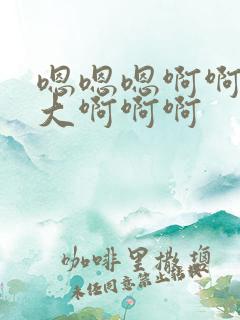 嗯嗯嗯啊啊
大啊啊啊
咖啡里撒塇
未经同意禁止转载